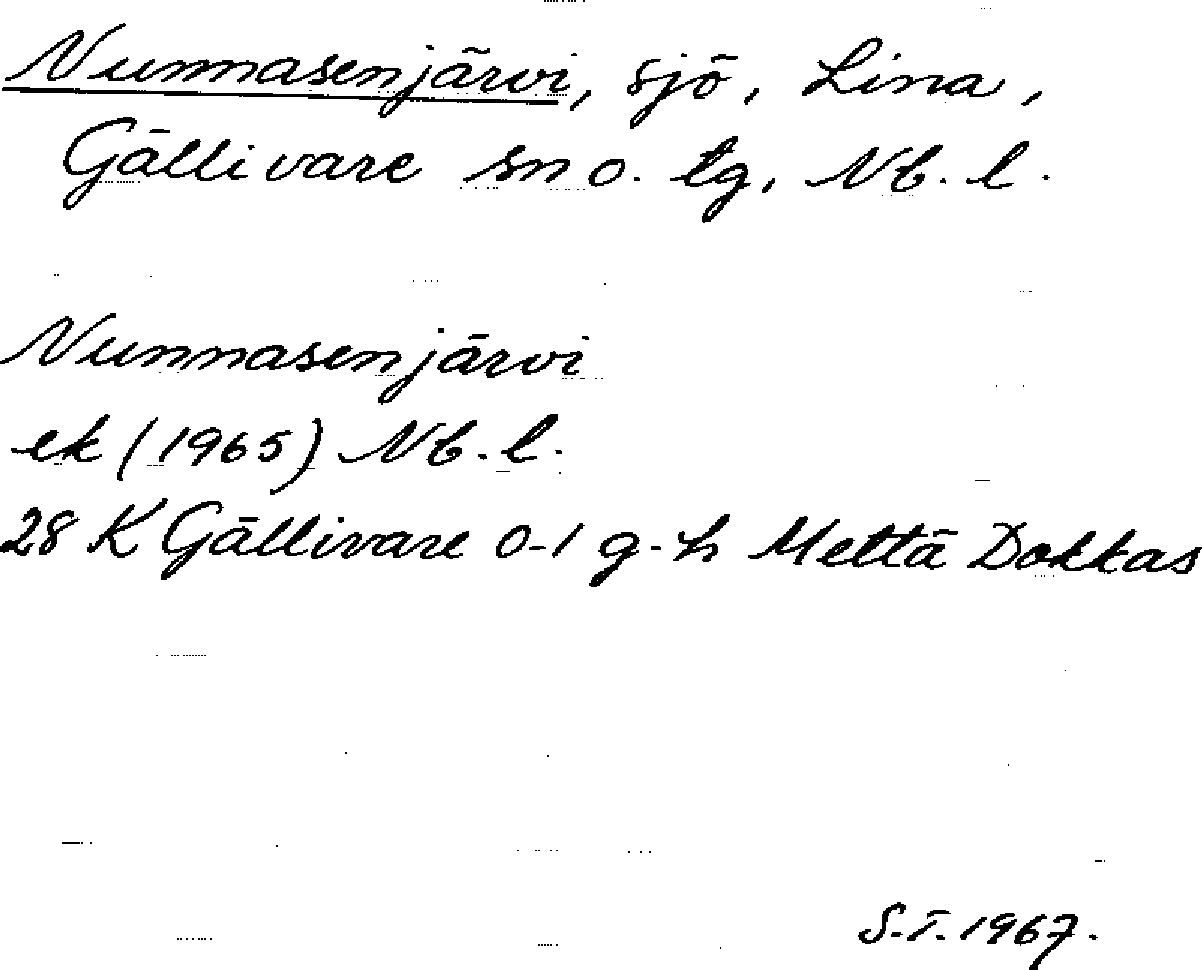 Nunnasenjärvi, sjö, Lina,
Gällivare sn o. tg, Nb. l.
Nunnasenjärvi
ek (1965) Nb. l.
28 K Gällivare 0-1 g-h Mettä Dokkas
S.I. 1967.